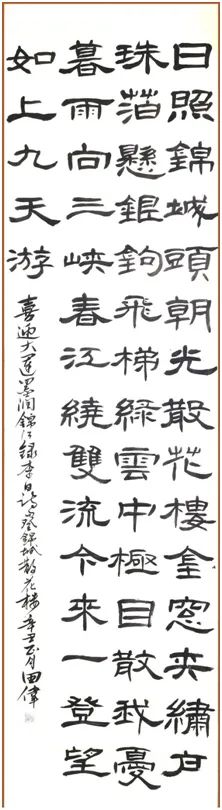 日照錦城頭朝光散花樓金窓夾繡户
珠箔懸銀鉤飛梯綠雲中極目散我憂
暮雨向三峽春江繞雙流今來一登望
如上九天游
喜迎大運墨潤錦江録李白詩登錦城散花樓辛丑月田偉